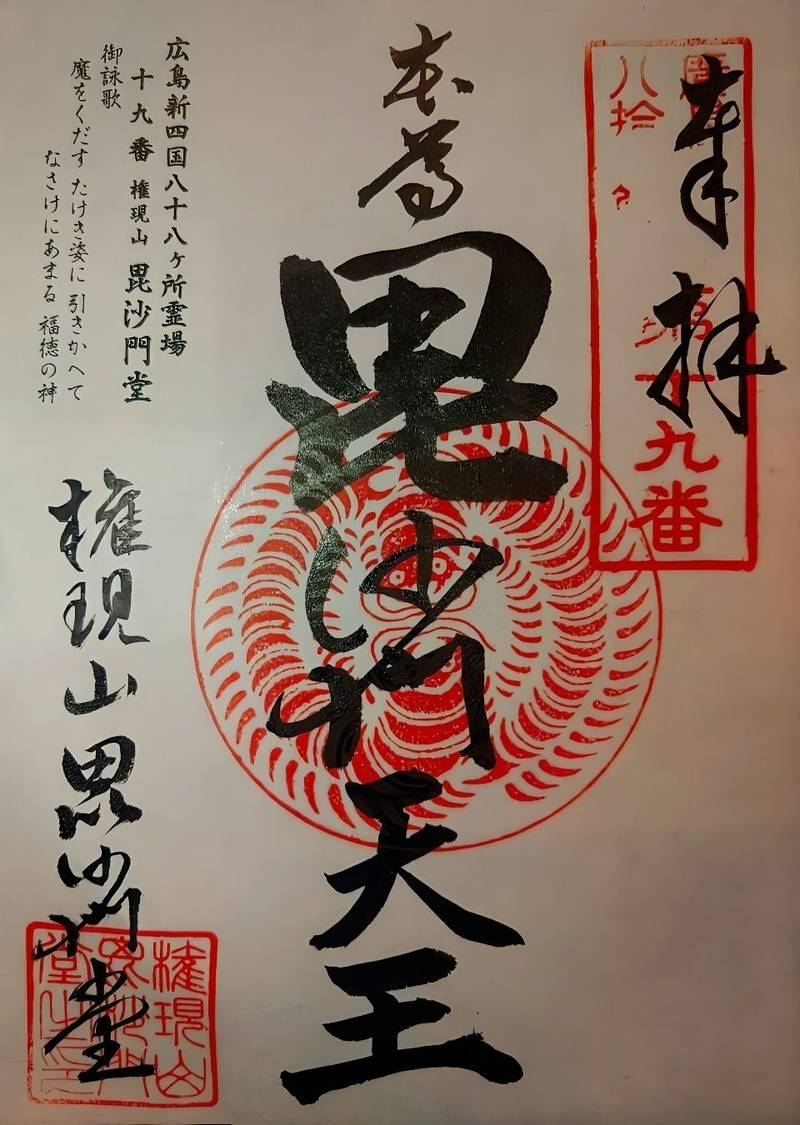 奉拝
八拾
九番
本尊
毘沙門天王
広島新四国八十八ヶ所霊場
十九番 権現山 毘沙門堂
御詠歌
魔をくだす たけき姿に 引きかへて
なさけにあまる 福徳の神
権現山毘沙門堂
権現山
毘沙門
堂